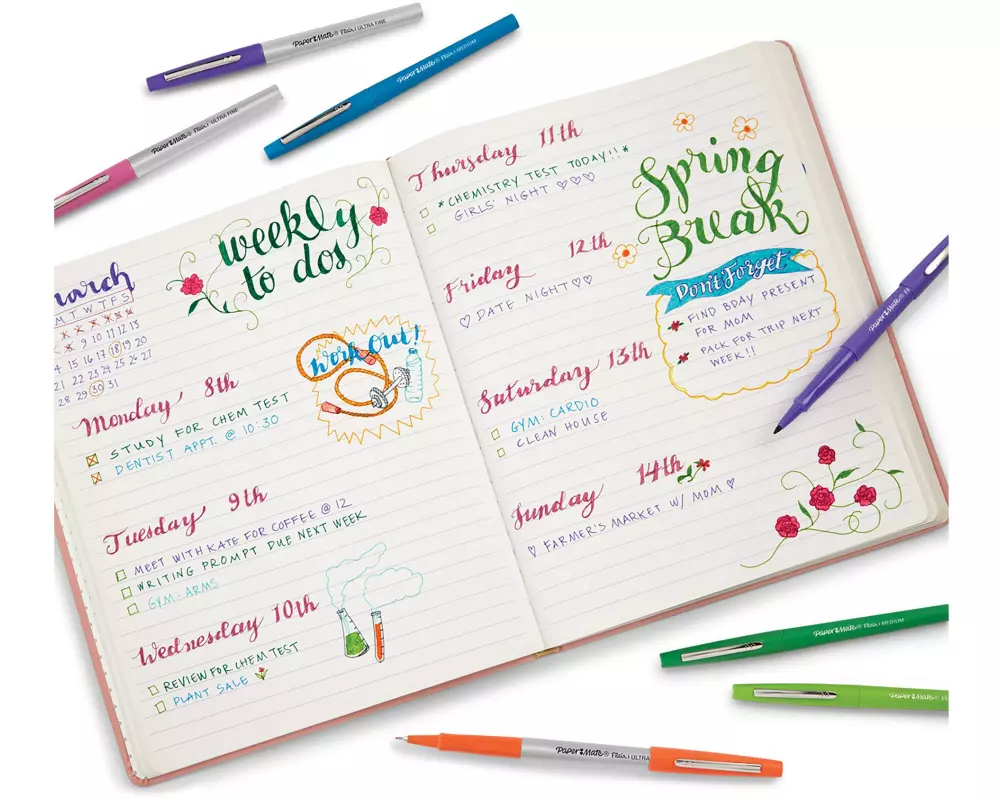 Paper Mate® Flair. ULTRA FINE
Paper Mate® Flair. MEDIUM
Paper Mate® Flair. ULTRA FINE
weekly
to dos
M T W T F S
9 10 11 12 13
14 15 16 17 18 19 20
21 22 23 24 25 26 27
28 29 30 31
Monday 8th
STUDY FOR CHEM TEST
DENTIST APPT. @ 10:30
work out!
Tuesday 9th
MEET WITH KATE FOR COFFEE @ 12
WRITING PROMPT DUE NEXT WEEK
GYM: ARMS
Wednesday 10th
REVIEW FOR CHEM TEST
PLANT SALE
Thursday 11th
*CHEMISTRY TEST TODAY!!*
GIRLS' NIGHT ♡♡♡
Friday 12th
♡ DATE NIGHT ♡♡
Saturday 13th
GYM: CARDIO
CLEAN HOUSE
Sunday 14th
♡ FARMER'S MARKET W/ MOM ♡
Spring
Break
Don't Forget
FIND BDAY PRESENT
FOR MOM
PACK FOR TRIP NEXT
WEEK!!
Paper Mate®
Paper Mate® Flair. MEDIUM
Paper Mate® Flair.
Paper Mate® Flair. ULTRA